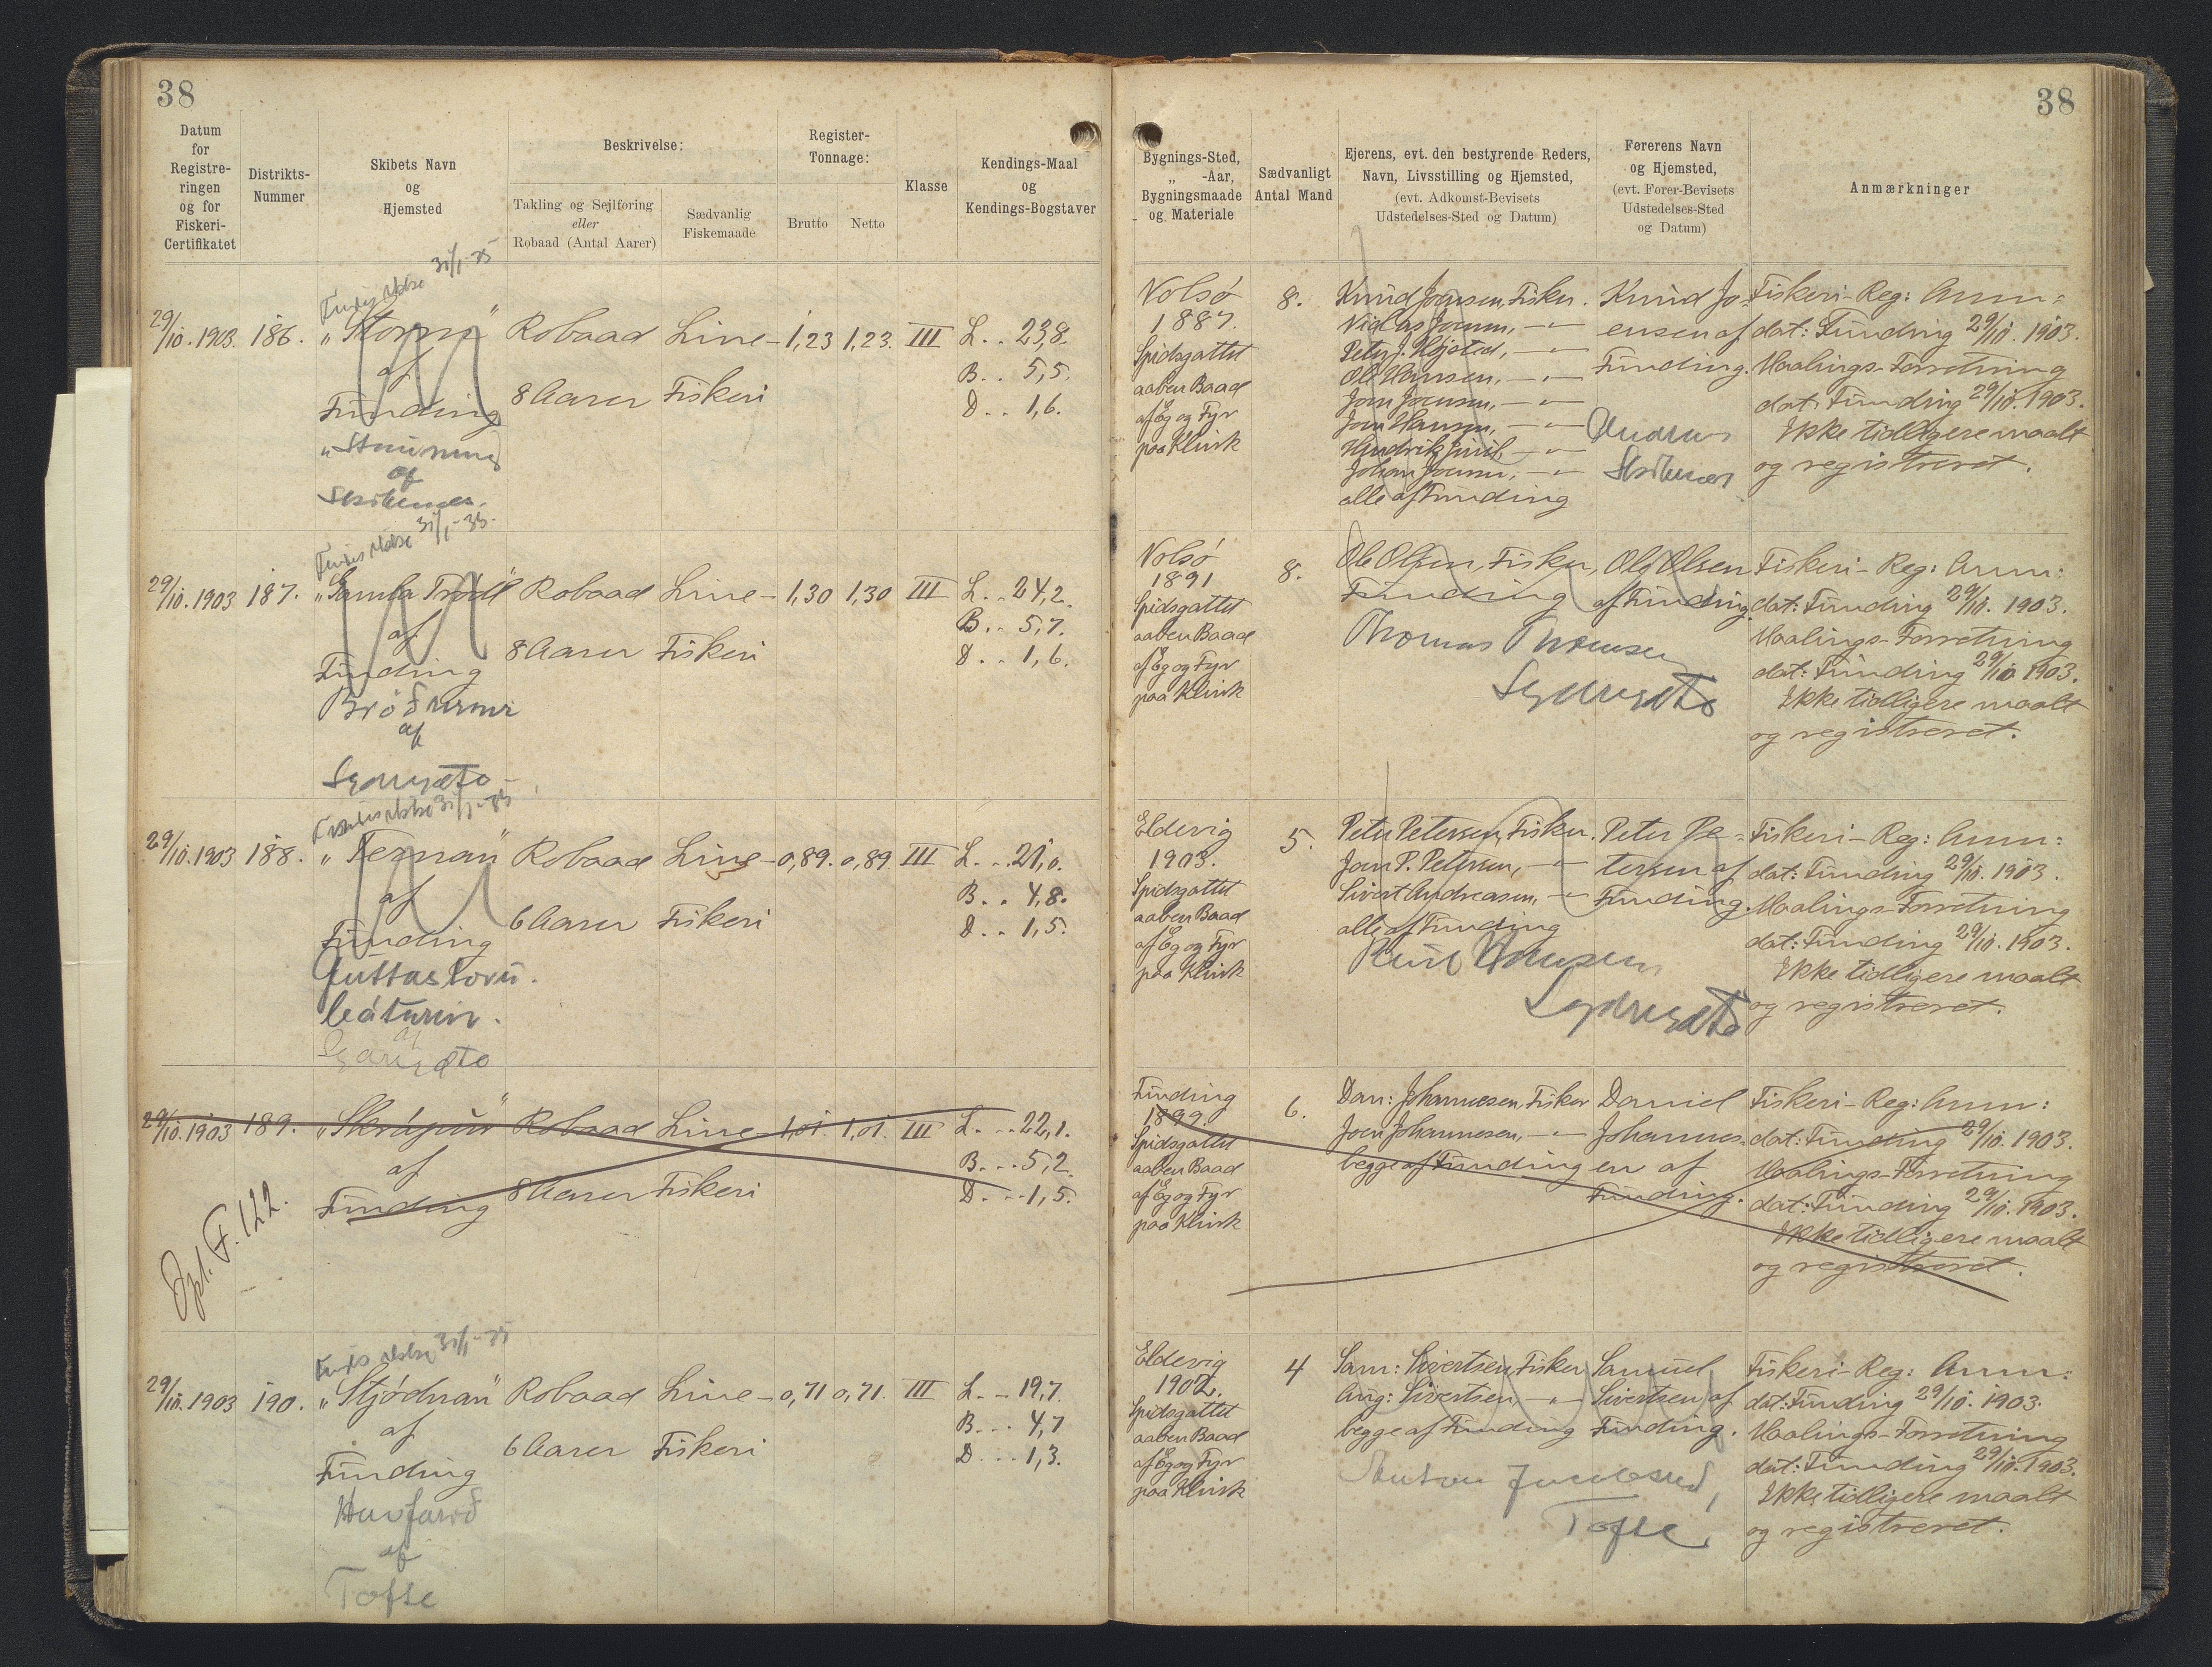 38
Datum
for
Registre-
ringen
og for
Fiskeri-
Certifikatet
Distrikts-
Nummer
Skibets Navn
og
Hjemsted
Beskrivelse:
Takling og Sejlføring
eller
Robaad (Antal Aarer)
Sædvanlig
Fiskemaade
Register-
Tonnage:
Brutto
Netto
Klasse
Kendings-Maal
og
Kendings-Bogstaver
31/1-35
29/10.1903. 186. "Storm" Robaad Line- 1,23 1,23. III L.. 23,8.
af
Funding
8 Aarer Fiskeri
B.. 5,5.
D.. 1,6.
af
31/1-35.
29/10.1903 187. "Gamla Trøll" Robaad Line- 1,30 1,30 III L.. 24,2.
af
Funding
8 Aarer Fiskeri
B.. 5,7.
D.. 1,6.
af
31/1-35
29/10.1903 188. "Ternan" Robaad Line- 0,89. 0,89 III L.. 21,0.
af
Funding
6 Aarer Fiskeri
B.. 4,8.
D.. 1,5.
báturin.
af
29/10.1903 189. "Skrápur" Robaad Line- 1,01. 1,01. III L... 22,1.
af
Funding
8 Aarer Fiskeri
B... 5,2.
D... 1,5.
F. 122.
31/1-35
29/10.1903 190. "Stjødnan" Robaad Line- 0,71 0,71. III L.. 19,7.
af
Funding
6 Aarer Fiskeri
B... 4,7
D... 1,3.
af
Tofte
38
Bygnings-Sted,
„ -Aar,
Bygningsmaade
og Materiale
Sædvanligt
Antal Mand
Ejerens, evt. den bestyrende Reders,
Navn, Livsstilling og Hjemsted,
(evt. Adkomst-Bevisets
Udstedelses-Sted og Datum)
Førerens Navn
og Hjemsted,
(evt. Fører-Bevisets
Udstedelses-Sted
og Datum)
Anmærkninger
Nolsø
1887.
Spidsgattet
aaben Baad
af Eg og Fyr
paa Klink
8.
Knud Joensen, Fisker.
Niclas Joensen, - " -
Peter J. Højsted, - " -
Ole Hansen, - " -
Joen Joensen, - " -
Joen Hansen, - " -
Johan Joensen, - " -
alle af Funding
Knud Jo-
ensen af
Funding.
Andreas
Fiskeri-Reg: Anm:
dat: Funding 29/10. 1903.
Maalings-Forretning
dat: Funding 29/10. 1903.
Ikke tidligere maalt
og registreret.
Nolsø
1891
Spidsgattet
aaben Baad
af Eg og Fyr
paa Klink
8.
Ole Olsen, Fisker,
Funding
Thomas Thomsen
Ole Olsen
af Funding.
Fiskeri-Reg: Anm:
dat: Funding 29/10. 1903.
Maalings-Forretning
dat: Funding 29/10 1903.
Ikke tidligere maalt
og registreret.
Eldevig
1903.
Spidsgattet
aaben Baad
af Eg og Fyr
paa Klink
5.
Peter Petersen, Fisker.
Joen P. Petersen, - " -
Sivert Andreasen, - " -
alle af Funding
Hansen
Peter Pe-
tersen af
Funding.
Fiskeri-Reg: Anm:
dat: Funding 29/10. 1903.
Maalings-Forretning
dat: Funding 29/10. 1903.
Ikke tidligere maalt
og registreret.
Funding
1899.
Spidsgattet
aaben Baad
af Eg og Fyr
paa Klink
6.
Dan: Johannesen, Fisker
Joen Johannesen, - " -
begge af Funding
Daniel
Johannes-
en af
Funding.
Fiskeri-Reg: Anm:
dat: Funding 29/10. 1903.
Maalings-Forretning
dat: Funding 29/10. 1903.
Ikke tidligere maalt
og registreret.
Eldevig
1902.
Spidsgattet
aaben Baad
af Eg og Fyr
paa Klink
4
Sam: Sivertsen, Fisker
Aug: Sivertsen, - " -
begge af Funding
Samuel
Sivertsen af
Funding.
Tofte
Fiskeri-Reg: Anm:
dat: Funding 29/10. 1903.
Maalings-Forretning
dat: Funding 29/10. 1903.
Ikke tidligere maalt
og registreret.